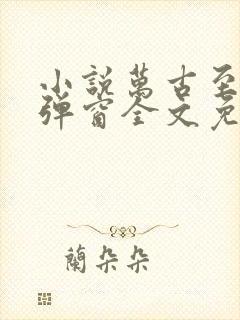 小說萬古至
彈窗全文免
蘭朵朵